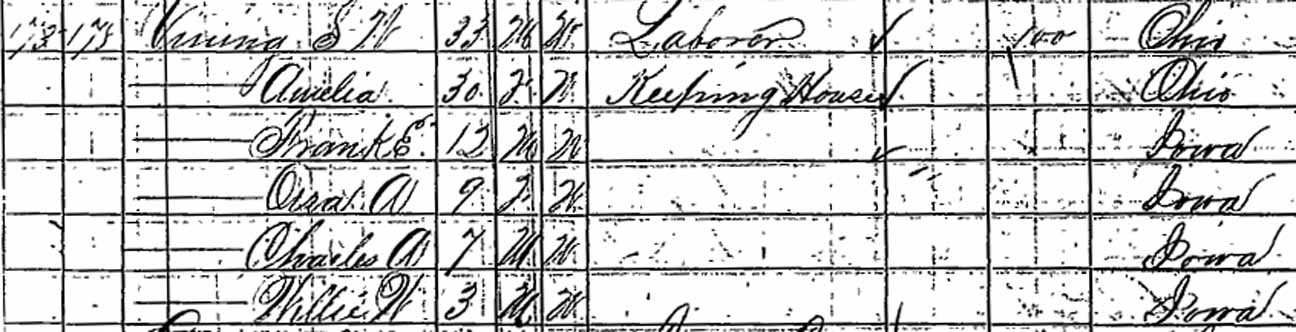 173 173 Vining S W 33 M W Laborer 100 Ohio
Amelia 30 F W Keeping House Ohio
Frank E 12 M W Iowa
A 9 F W Iowa
Charles A 7 M W Iowa
Willie W 3 M W Iowa